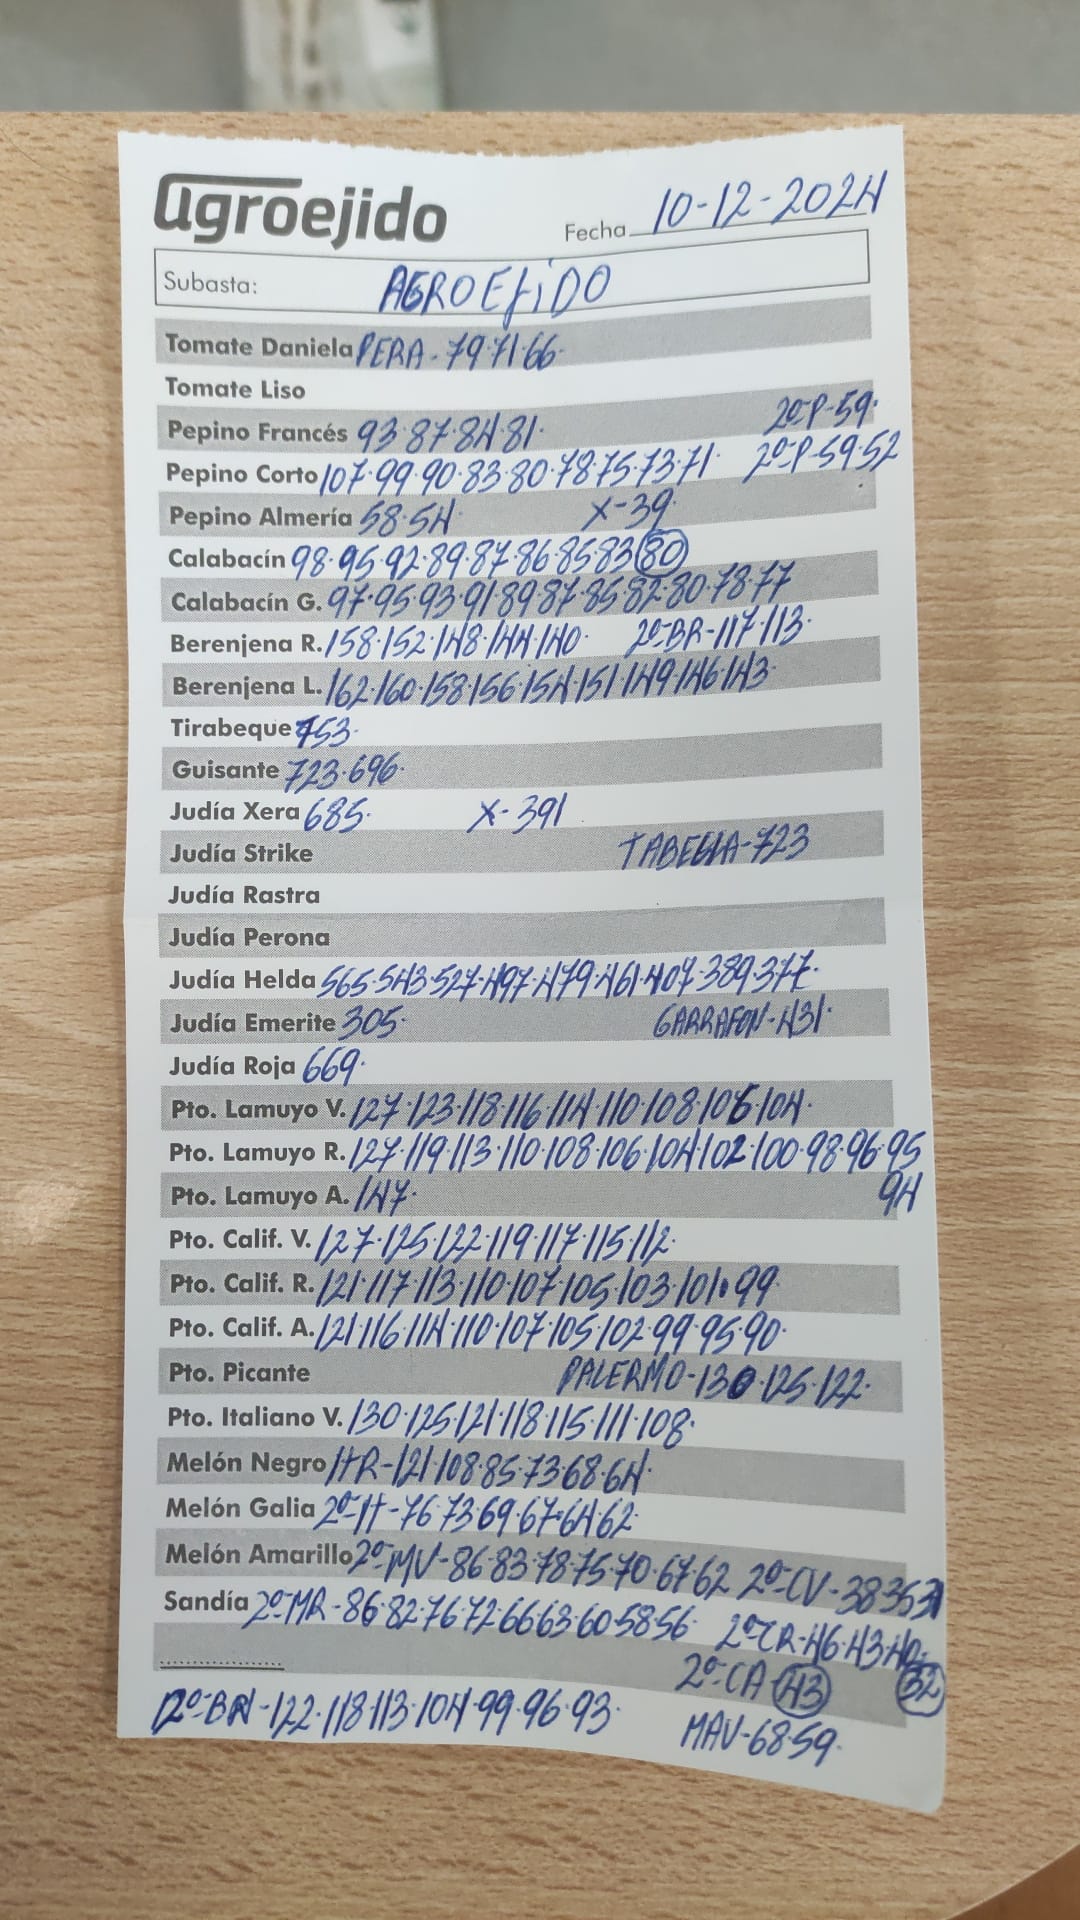 agroejido
Fecha 10-12-2024
Subasta: AGROEJIDO
Tomate Daniela PERA-79·71·66·
Tomate Liso
Pepino Francés 93·87·84·81· 2ª-P-59·
Pepino Corto 107·99·90·83·80·78·75·73·71· 2ª-P-59·52
Pepino Almería 58·54· X-39·
Calabacín 98·95·92·89·87·86·85·83·80
Calabacín G. 97·95·93·91·89·87·85·82·80·78·77
Berenjena R. 158·152·148·144·140· 2ª-BR-117·113·
Berenjena L. 162·160·158·156·154·151·149·146·143·
Tirabeque 753·
Guisante 723·696·
Judía Xera 685· X-391
Judía Strike TABELLA-723
Judía Rastra
Judía Perona
Judía Helda 565·543·527·497·479·461·407·389·377·
Judía Emerite 305· GARRAFON-431·
Judía Roja 669·
Pto. Lamuyo V. 127·123·118·116·114·110·108·106·104·
Pto. Lamuyo R. 127·119·113·110·108·106·104·102·100·98·96·95
94
Pto. Lamuyo A. 147·
Pto. Calif. V. 127·125·122·119·117·115·112·
Pto. Calif. R. 121·117·113·110·107·105·103·101·99
Pto. Calif. A. 121·116·114·110·107·105·102·99·95·90·
Pto. Picante PALERMO-130·125·122·
Pto. Italiano V. 130·125·121·118·115·111·108·
Melón Negro HR-121·108·85·73·68·64·
Melón Galia 2ª-H-76·73·69·67·64·62·
Melón Amarillo 2ª-MV-86·83·78·75·70·67·62 2ª-CV-38·35·31
Sandía 2ª-MR-86·82·76·72·66·63·60·58·56· 2ª-CR-46·43·40·
32
2ª-CA 43
2ª-BN-122·118·113·104·99·96·93·
MAV-68·59·